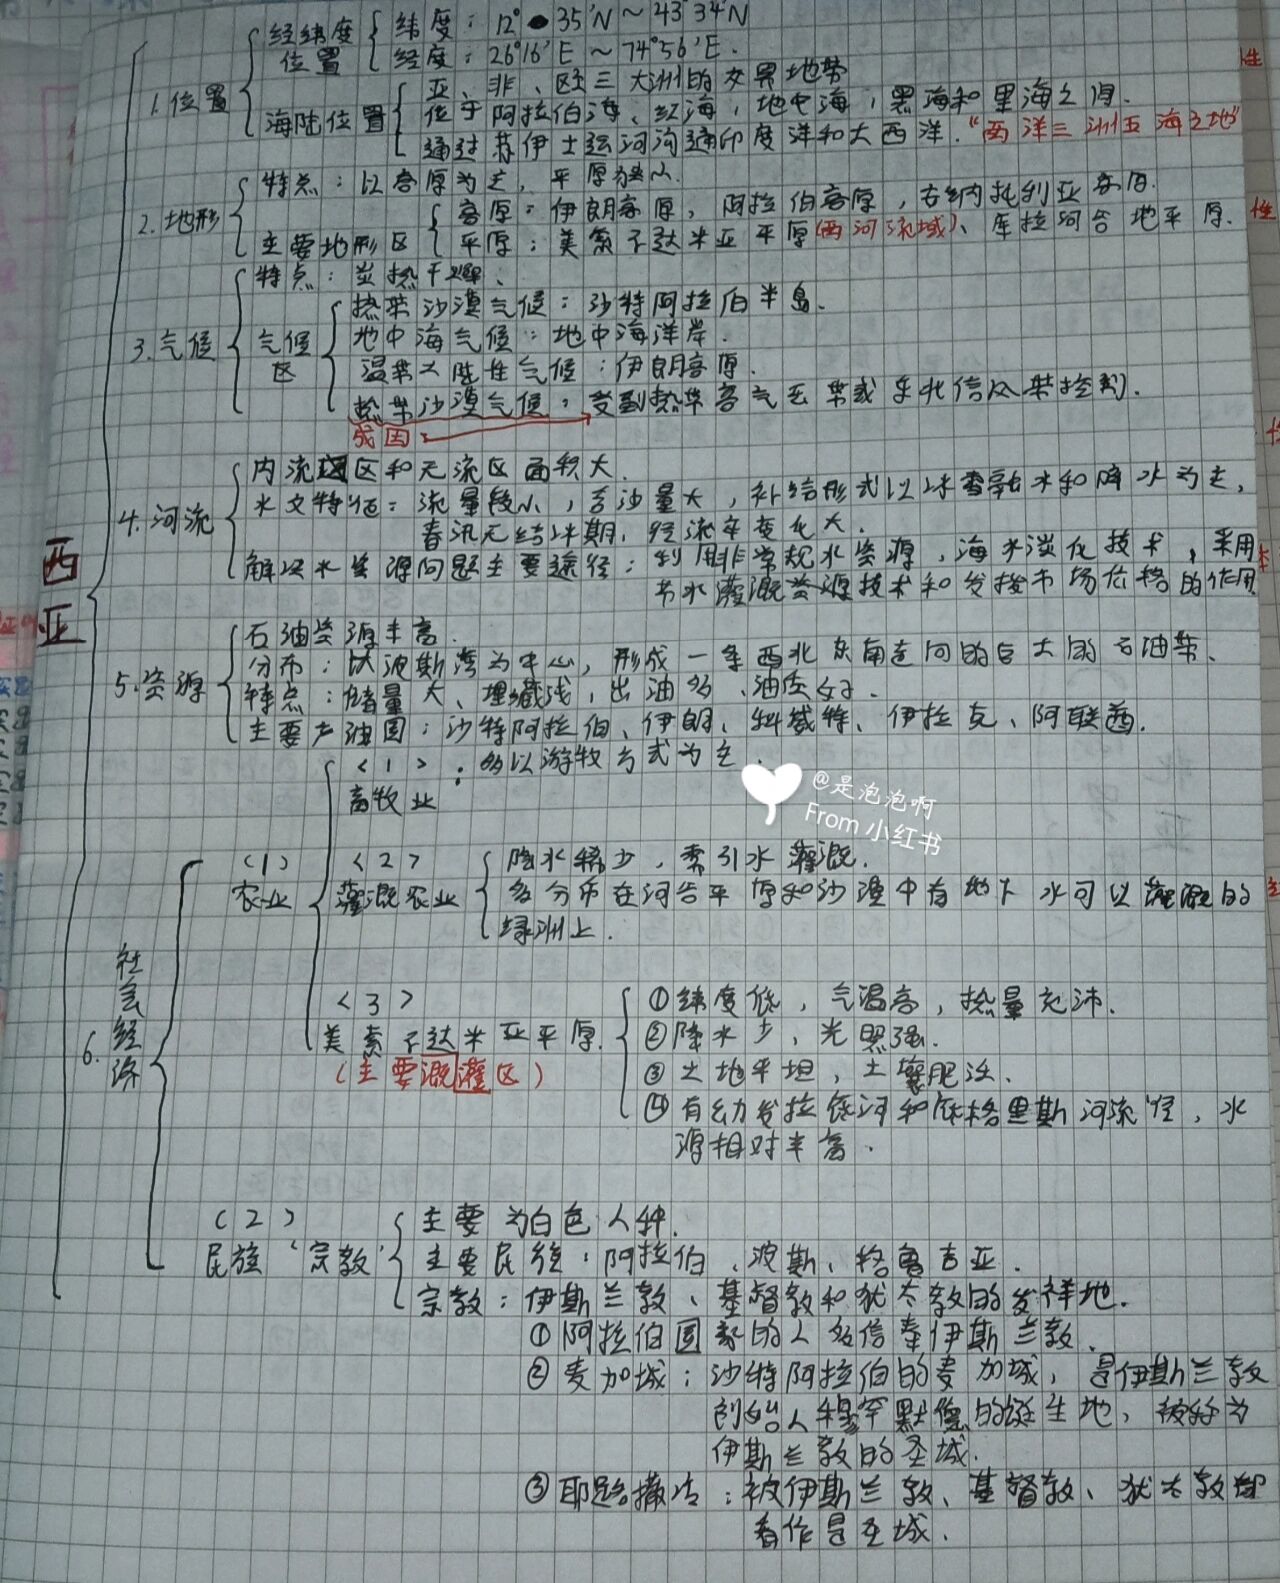 西亚
1.位置
经纬度位置
纬度：12°35′N～43°34′N
经度：26°16′E～74°56′E.
海陆位置
亚、非、欧三大洲的交界地带
位于阿拉伯海、红海，地中海，黑海和里海之间.
通过苏伊士运河沟通印度洋和大西洋.“两洋三洲五海之地”
2.地形
特点：以高原为主，平原狭小.
主要地形区
高原：伊朗高原，阿拉伯高原，安纳托利亚高原.
平原：美索不达米亚平原(两河流域)、库拉河谷地平原.
3.气候
特点：炎热干燥、
气候区
热带沙漠气候：沙特阿拉伯半岛.
地中海气候：地中海洋岸.
温带大陆性气候：伊朗高原.
热带沙漠气候：受到热带高气压带或东北信风带控制.
成因:
4.河流
内流区和无流区面积大.
水文特征：流量较小，含沙量大，补给形式以冰雪融水和降水为主，
春汛无结冰期，径流率变化大.
解决水资源问题主要途径：利用非常规水资源，海水淡化技术，采用
节水灌溉资源技术和发挥市场价格的作用
5.资源
石油资源丰富.
分布：以波斯湾为中心，形成一条西北东南走向的巨大的石油带、
特点：储量大、埋藏浅，出油多、油质好.
主要产油国：沙特阿拉伯、伊朗、科威特、伊拉克、阿联酋.
6.社会经济
(1)农业
<1>畜牧业：多以游牧方式为主.
@是泡泡啊
From 小红书
<2>灌溉农业
降水稀少，需引水灌溉.
多分布在河谷平原和沙漠中有地下水可以灌溉的
绿洲上.
<3>美索不达米亚平原
(主要溉灌区)
①纬度低，气温高，热量充沛.
②降水少，光照强.
③土地平坦，土壤肥沃.
④有幼发拉底河和底格里斯河流经，水
源相对丰富.
(2)民族、宗教
主要为白色人种.
主要民族：阿拉伯、波斯、格鲁吉亚.
宗教：伊斯兰教、基督教和犹太教的发祥地.
①阿拉伯国家的人多信奉伊斯兰教.
②麦加城：沙特阿拉伯的麦加城，是伊斯兰教
创始人穆罕默德的诞生地，被称为
伊斯兰教的圣城.
③耶路撒冷：被伊斯兰教、基督教、犹太教都
看作是圣城.